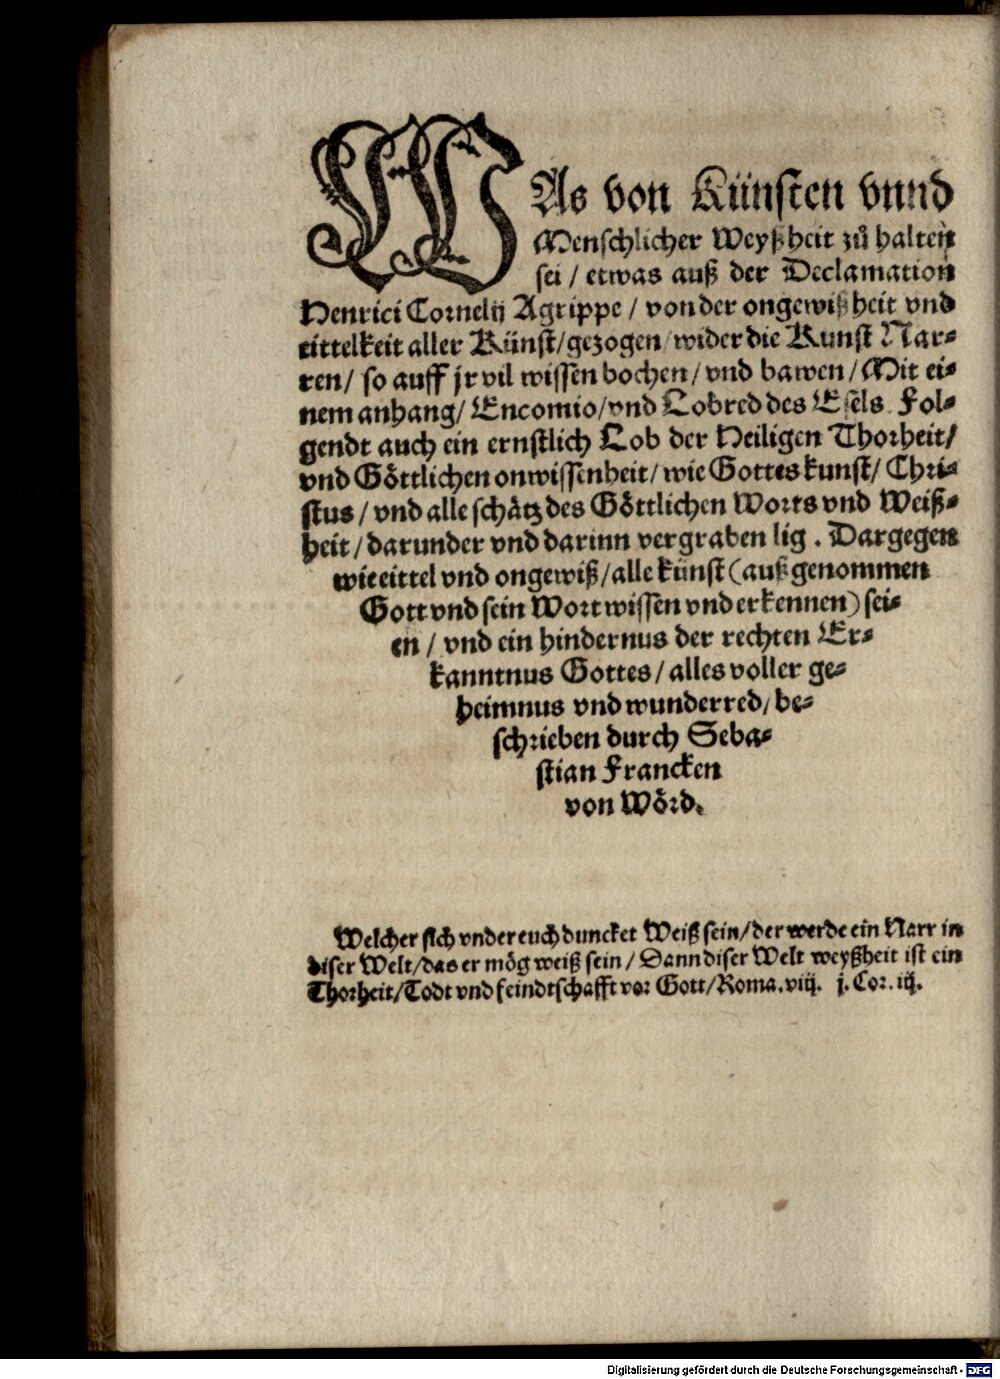 WAs von Künsten vnnd
Menschlicher Weyßheit zů halten
sei / etwas auß der Declamation
Henrici Cornelij Agrippe / von der ongewißheit vnd
eittelkeit aller Künst / gezogen / wider die Kunst Nar⸗
ren / so auff jr vil wissen bochen / vnd bawen / Mit ei⸗
nem anhang / Encomio / vnd Lobred des Esels. Fol⸗
gendt auch ein ernstlich Lob der Heiligen Thorheit /
vnd Göttlichen onwissenheit / wie Gottes kunst / Chri⸗
stus / vnd alle schätz des Göttlichen Worts vnd Weiß⸗
heit / darunder vnd darinn vergraben lig . Dargegen
wie eittel vnd ongewiß / alle künst (außgenommen
Gott vnd sein Wort wissen vnd erkennen) sei⸗
en / vnd ein hindernus der rechten Er⸗
kanntnus Gottes / alles voller ge⸗
heimnus vnd wunderred / be⸗
schrieben durch Seba⸗
stian Francken
von Wörd.
Welcher sich vnder euch duncket Weiß sein / der werde ein Narr in
diser Welt / das er mög weiß sein / Dann diser Welt weyßheit ist ein
Thorheit / Todt vnd feindtschafft vor Gott / Roma. viij. j. Cor. iij.
Digitalisierung gefördert durch die Deutsche Forschungsgemeinschaft - DFG